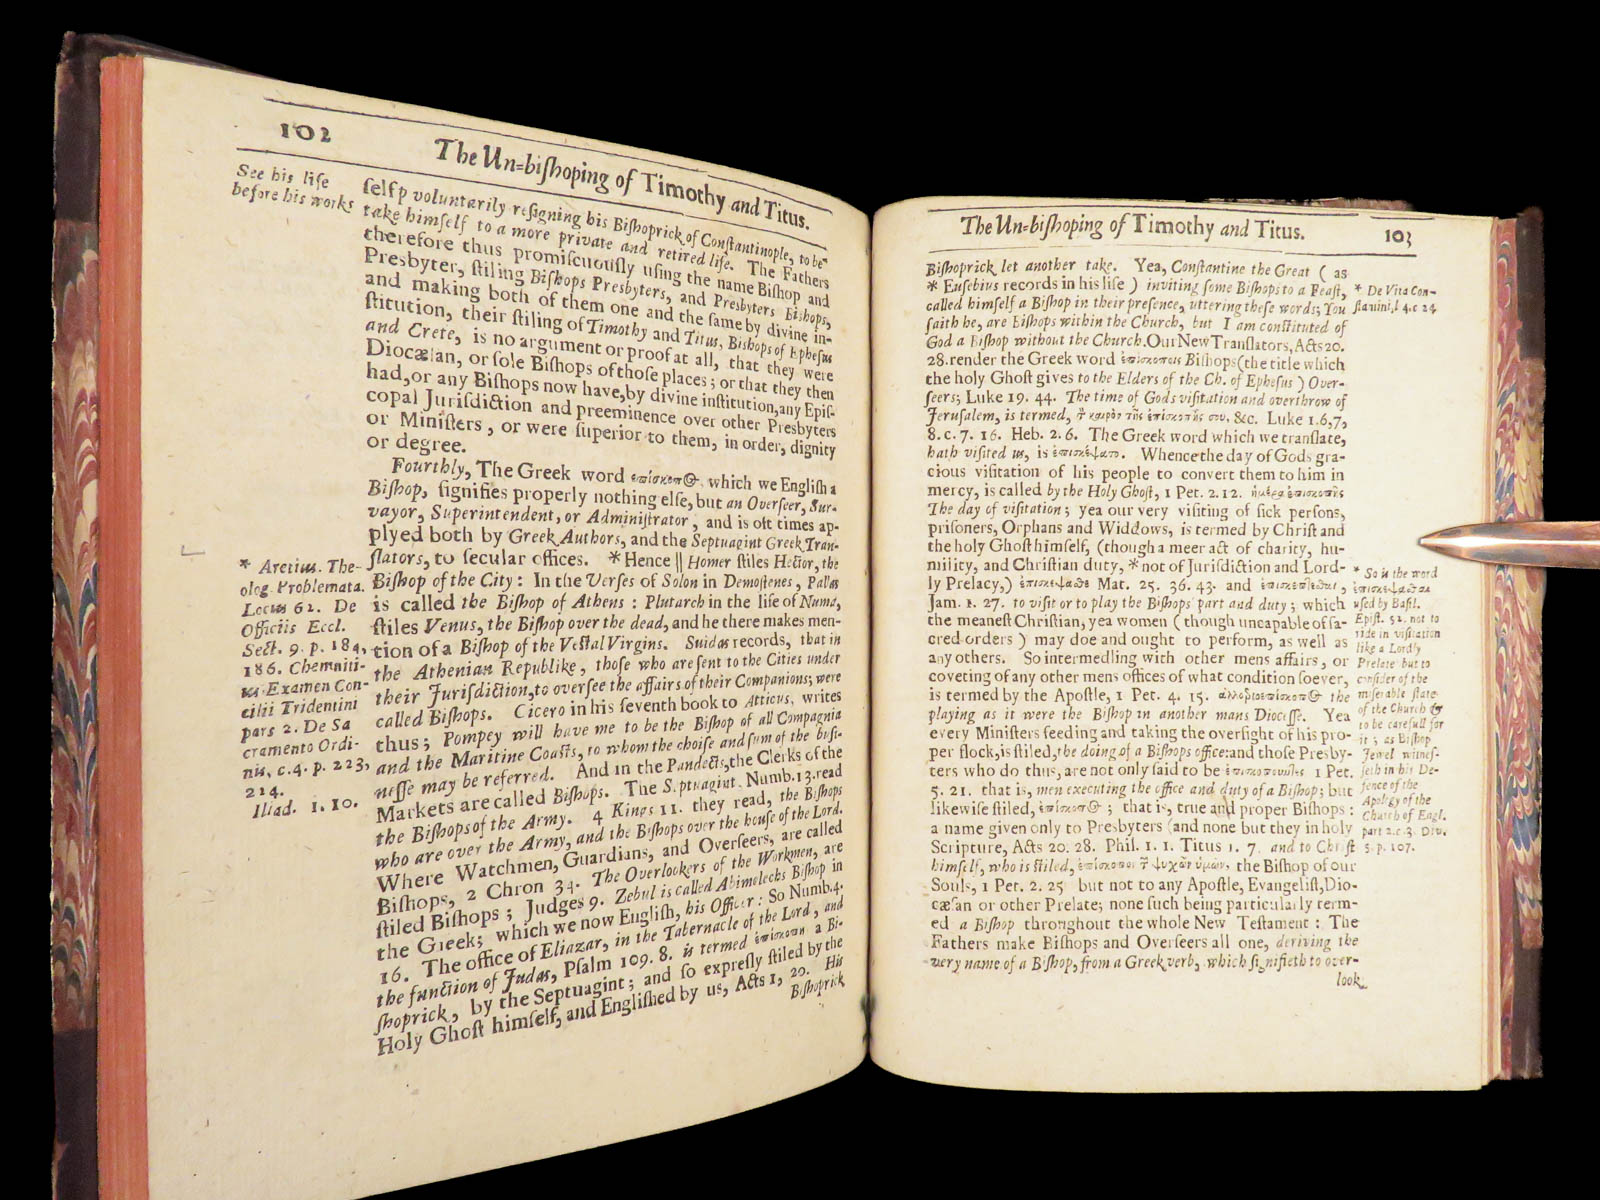 102
The Un-bishoping of Timothy and Titus.
See his life
before his works
selfp voluntarily resigning his Bishoprick of Constantinople, to be-
take himself to a more private and retired life. The Fathers
therefore thus promiscuously using the name Bishop and
Presbyter, stiling Bishops Presbyters, and Presbyters Bishops,
and making both of them one and the same by divine in-
stitution, their stiling of Timothy and Titus, Bishops of Ephesus
and Crete, is no argument or proof at all, that they were
Diocæsan, or sole Bishops of those places; or that they then
had, or any Bishops now have, by divine institution, any Epis-
copal Jurisdiction and preeminence over other Presbyters
or Ministers, or were superior to them, in order, dignity
or degree.
Fourthly, The Greek word ἐπίσκοπ⊕, which we English a
Bishop, signifies properly nothing else, but an Overseer, Sur-
vayor, Superintendent, or Administrator, and is oft times ap-
plyed both by Greek Authors, and the Septuagint Greek Tran-
slators, to secular offices. * Hence || Homer stiles Hector, the
Bishop of the City: In the Verses of Solon in Demostenes, Pallas
is called the Bishop of Athens: Plutarch in the life of Numa,
stiles Venus, the Bishop over the dead, and he there makes men-
tion of a Bishop of the Vestal Virgins. Suidas records, that in
the Athenian Republike, those who are sent to the Cities under
their Jurisdiction, to oversee the affairs of their Companions, were
called Bishops. Cicero in his seventh book to Atticus, writes
thus; Pompey will have me to be the Bishop of all Compagnia
and the Maritine Coasts, to whom the choise and sum of the busi-
nesse may be referred. And in the Pandects, the Clerks of the
Markets are called Bishops. The Septuagint. Numb. 13. read
the Bishops of the Army. 4 Kings 11. they read, the Bishops
who are over the Army, and the Bishops over the house of the Lord.
Where Watchmen, Guardians, and Overseers, are called
Bishops, 2 Chron 34. The Overlookers of the Workmen, are
stiled Bishops; Judges 9. Zebul is called Abimelechs Bishop in
the Greek; which we now English, his Officer: So Numb. 4.
16. The office of Eliazar, in the Tabernacle of the Lord, and
the function of Judas, Psalm 109. 8. is termed ἐπισκοπὴ a Bi-
shoprick, by the Septuagint; and so expresly stiled by the
Holy Ghost himself, and Englished by us, Acts 1, 20. His
Bishoprick
* Aretius. The-
olog Problemata.
Locus 62. De
Officiis Eccl.
Sect. 9. p. 184,
186. Chemniti-
us Examen Con-
cilii Tridentini
pars 2. De Sa
cramento Ordi-
nis, c. 4. p. 223,
214.
Iliad. l. 10.
The Un-bishoping of Timothy and Titus.
103
Bishoprick let another take. Yea, Constantine the Great (as
* Eusebius records in his life) inviting some Bishops to a Feast,
called himself a Bishop in their presence, uttering these words; You
saith he, are Bishops within the Church, but I am constituted of
God a Bishop without the Church. Our New Translators, Acts 20.
28. render the Greek word ἐπίσκοποις Bishops (the title which
the holy Ghost gives to the Elders of the Ch. of Ephesus) Over-
seers; Luke 19. 44. The time of Gods visitation and overthrow of
Jerusalem, is termed, τ̃ καιρὸν τῆς ἐπισκοπῆς σου. &c. Luke 1. 6, 7,
8. c. 7. 16. Heb. 2. 6. The Greek word which we translate,
hath visited us, is ἐπισκέψατο. Whence the day of Gods gra-
cious visitation of his people to convert them to him in
mercy, is called by the Holy Ghost, 1 Pet. 2. 12. ἡμέρα ἐπισκοπῆς
The day of visitation; yea our very visiting of sick persons,
prisoners, Orphans and Widdows, is termed by Christ and
the holy Ghost himself, (though a meer act of charity, hu-
mility, and Christian duty, * not of Jurisdiction and Lord-
ly Prelacy,) Mat. 25. 36. 43. and
Jam. 1. 27. to visit or to play the Bishops part and duty; which
the meanest Christian, yea women (though uncapable of sa-
cred orders) may doe and ought to perform, as well as
any others. So intermedling with other mens affairs, or
coveting of any other mens offices of what condition soever,
is termed by the Apostle, 1 Pet. 4. 15. ἀλλοτριοεπίσκοπ⊕ the
playing as it were the Bishop in another mans Diocesse. Yea
every Ministers feeding and taking the oversight of his pro-
per flock, is stiled, the doing of a Bishops office: and those Presby-
ters who do thus, are not only said to be ἐπισκοποῦντες 1 Pet.
5. 21. that is, men executing the office and duty of a Bishop; but
likewise stiled, ἐπίσκοπ⊕; that is, true and proper Bishops:
a name given only to Presbyters (and none but they in holy
Scripture, Acts 20. 28. Phil. 1. 1. Titus 1. 7. and to Christ
himself, who is stiled, ἐπίσκοποι τ̃ ψυχῶν ὑμῶν, the Bishop of our
Souls, 1 Pet. 2. 25 but not to any Apostle, Evangelist, Dio-
cæsan or other Prelate; none such being particularly term-
ed a Bishop throughout the whole New Testament: The
Fathers make Bishops and Overseers all one, deriving the
very name of a Bishop, from a Greek verb, which signifieth to over-
look.
* De Vita Con-
stanini, l 4. c 24
* So is the word
used by Basil.
Epist. 52. not to
ride in visitation
like a Lordly
Prelate but to
consider of the
miserable state
of the Church &
to be carefull for
it; as Bishop
Jewel witnes-
seth in his De-
fence of the
Apology of the
Church of Engl.
part 2. c. 3. Div.
5. p. 107.